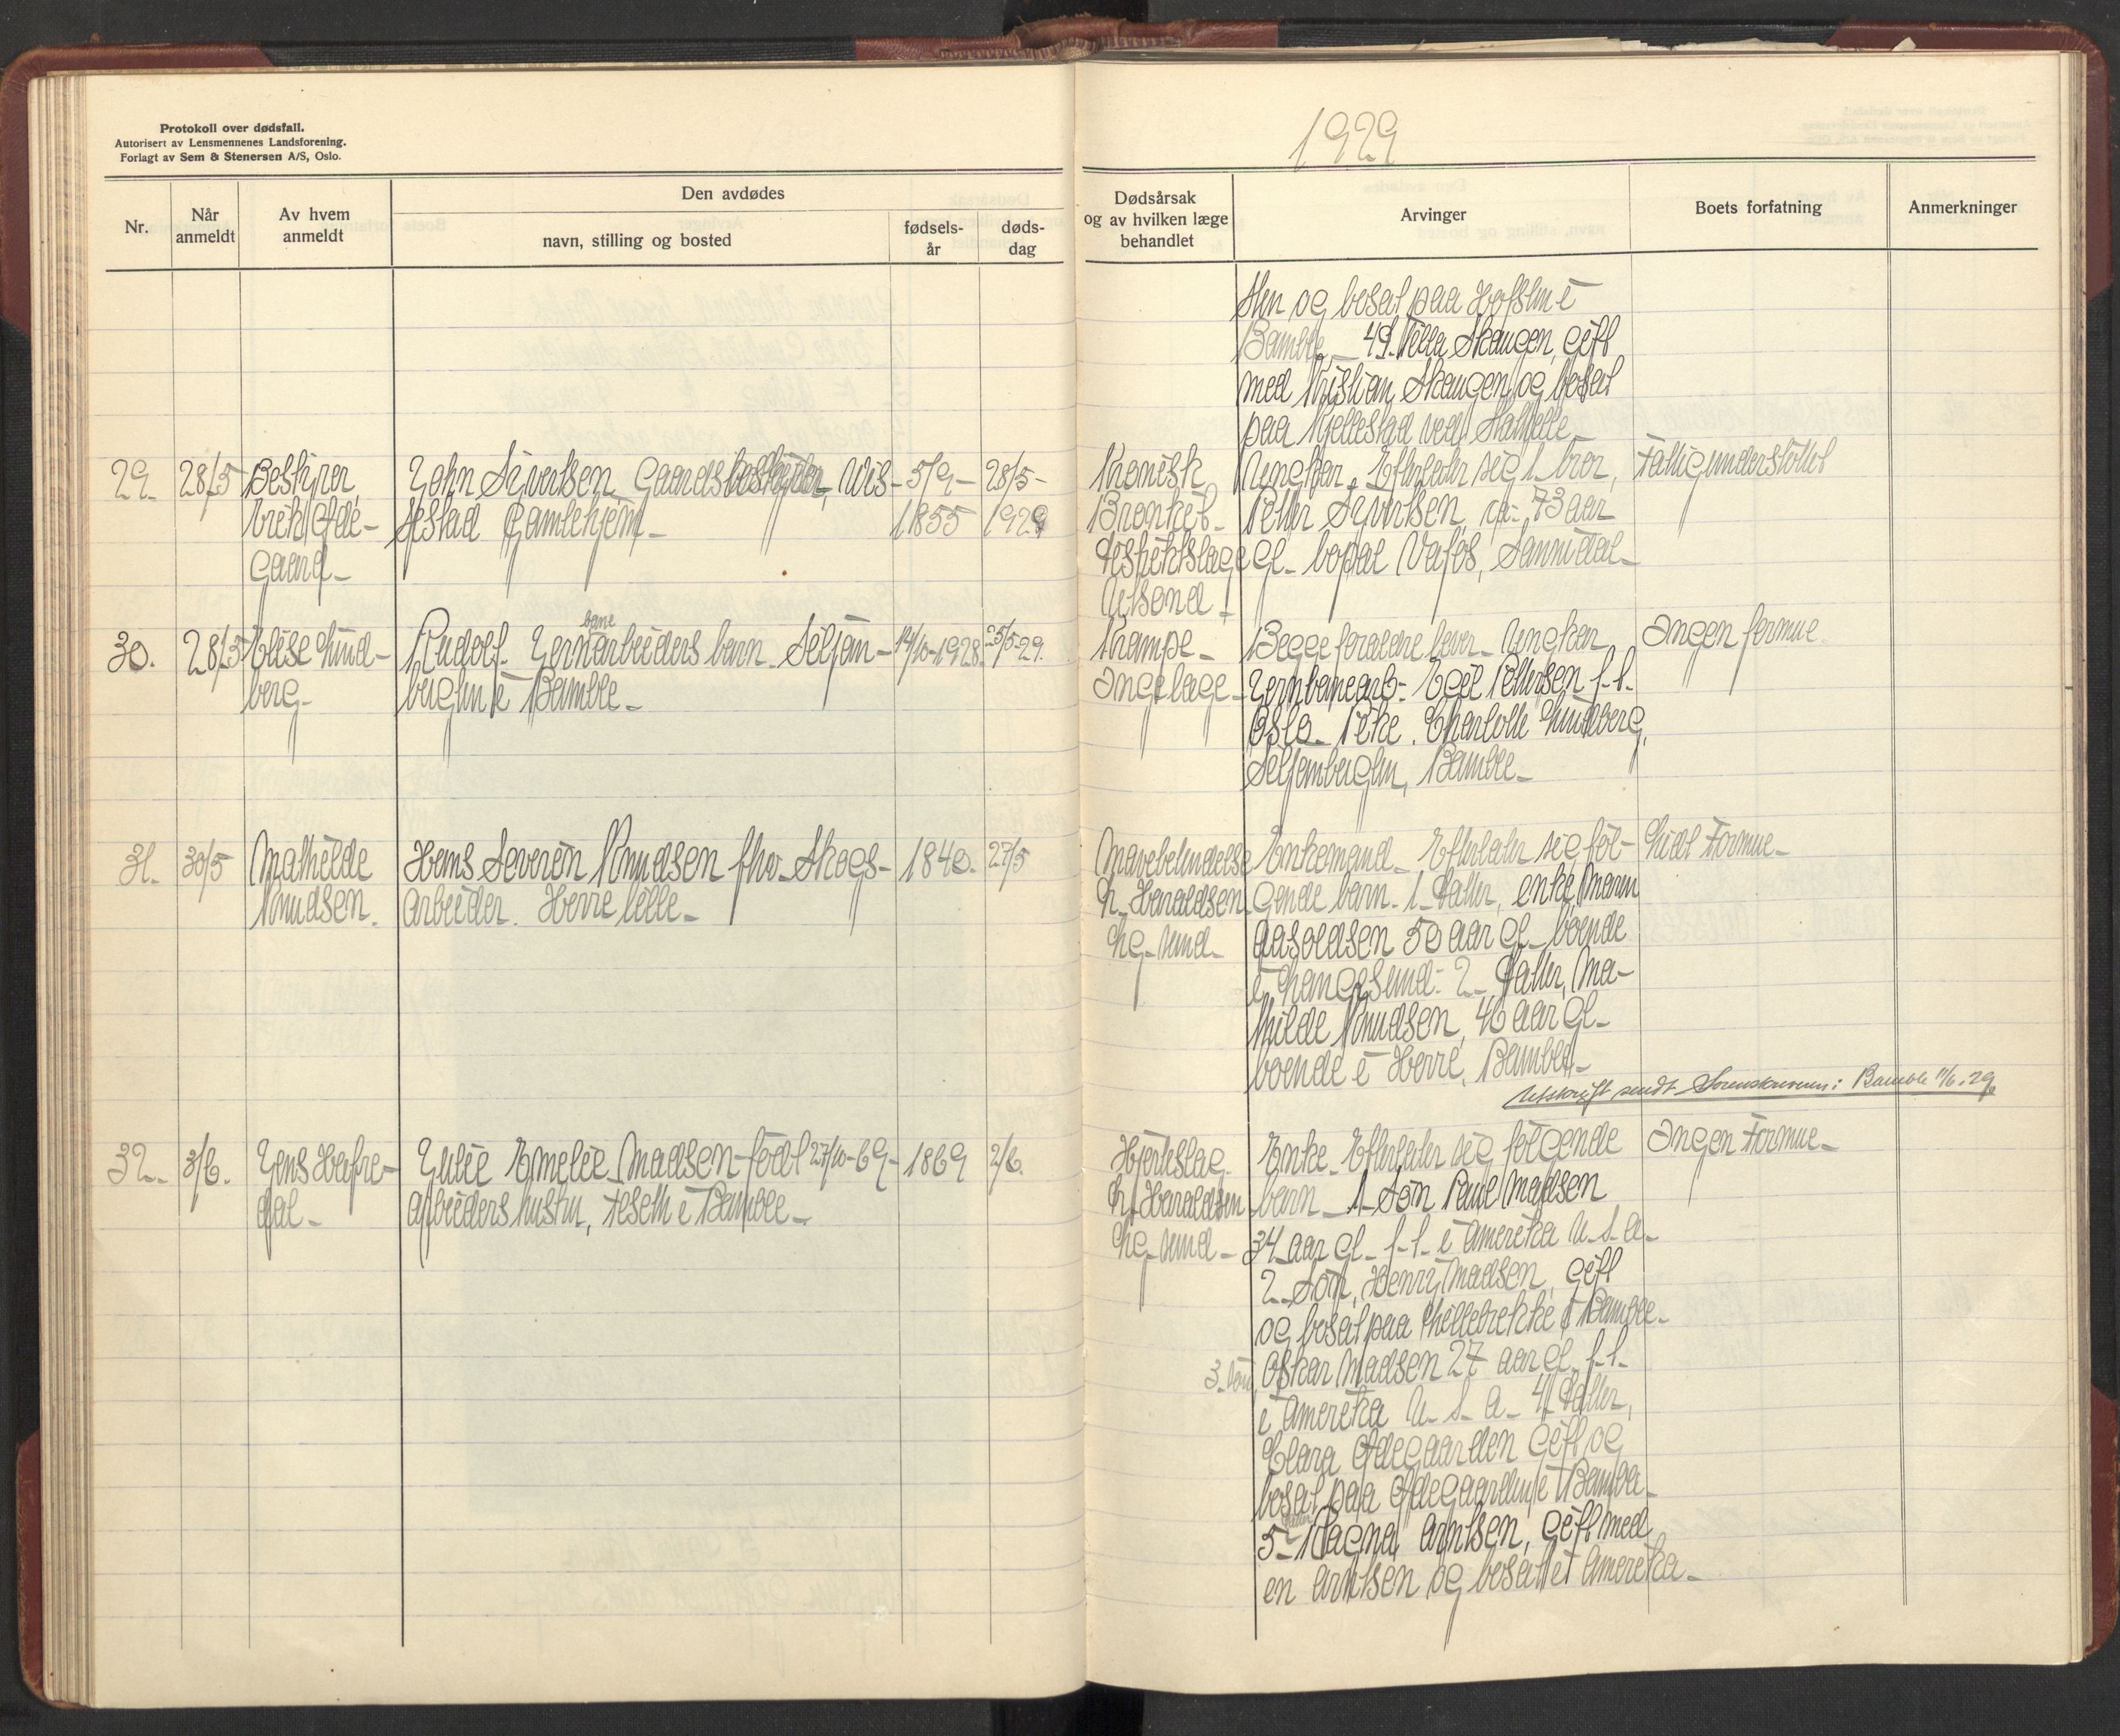 Protokoll over dødsfall.
Autorisert av Lensmennenes Landsforening.
Forlagt av Sem & Stenersen A/S, Oslo.
Nr.
Når
anmeldt
Av hvem
anmeldt
Den avdødes
navn, stilling og bosted
fødsels-
år
døds-
dag
1929
Dødsårsak
og av hvilken læge
behandlet
Arvinger
Boets forfatning
Anmerkninger
og bosat paa
Bamble 4 Skaugen, gift
med Kristian Skaugen og bosat
paa Kjellestad ved Stathelle
29. 28/5
Bestyrer
gaard
John Sivertsen, Gaardsbestyrer, Vis-
sestad Gamlehjem
5/9-
1855
28/5-
1929
Kronisk
Bronkit
distriktslæge
Ungkar. Efterlater sig 1 bror,
Petter Sivertsen ca. 73 aar
gl. bopæl Vafos, Sannidal
Fattigunderstøttet
30. 28/5
Elise Lund-
berg
Rudolf. Jernbanearbeiders barn. Seljan-
berglin i Bamble
14/10-1928. 25/5-29.
Krampe
Ingen læge
Begge foræeldre lever. Ungkar
Jernbanearb. Egil Pettersen f.t.
Oslo. Pike. Charlotte Lundberg,
Bamble
Ingen formue
31. 30/5
Mathilde
Knudsen.
Hans Severin Knudsen fhv. Skogs-
arbeider. Herre lille
1840. 27/5
Mavebetendelse
Hr. Haraldsen
Lg. sund
Enkemand. Efterlater sig føl-
gende barn. 1. Datter, enke Maren
Aasoldsen 50 aar gl. boende
i Langesund. 2. Datter, Ma-
thilde Knudsen, 46 aar gl.
boende i Herre, Bamble
Lidt Formue
Utskrift sendt Sorenskriveren i Bamble 11/6.29.
32. 3/6.
Jens Hafre-
dal
Julie Emelie Madsen født 27/10-69
Arbeiders hustru, i Bamble
1869 2/6.
Hjerteslag
Hr Haraldsen
Lg. sund
Enke. Efterlater sig følgende
barn 1 Søn Paul Madsen
34 aar gl. f.t. i Amerika U.S.A.
2. Søn, Henry Madsen, gift
og bosat paa i Bamble
3. Søn, Oskar Madsen 27 aar gl. f.t.
i Amerika U.S.A. 4 Datter,
Clara Ødegaarden gift og
bosat paa Ødegaarden i Bamble
5 Datter Magna Arntsen, gift med
en Arntsen og bosat i Amerika
Ingen Formue